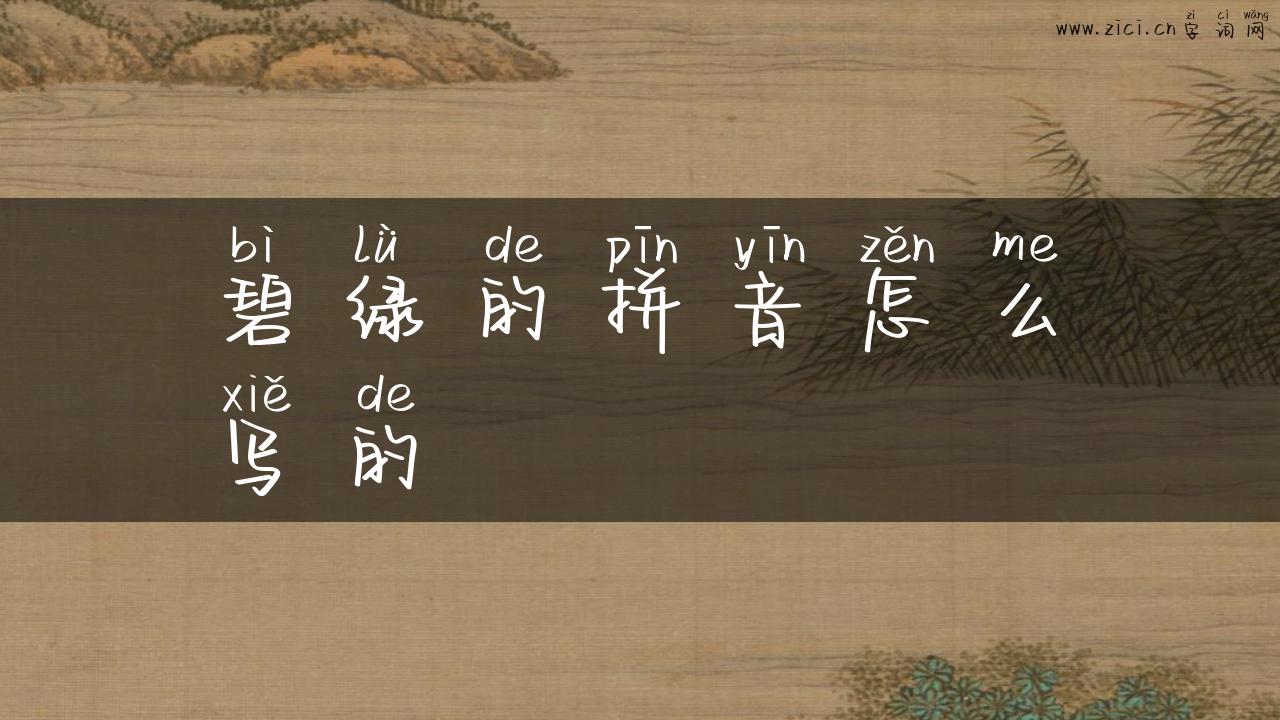 zì cí wǎng
www.zici.cn 字 词 网
bì lǜ de pīn yīn zěn me
碧 绿 的 拼 音 怎 么
xiě de
写 的